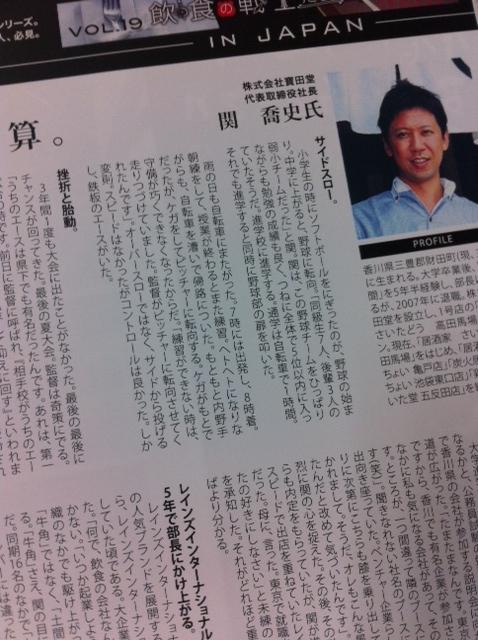 シリーズ。
人、必見。
VOL.19
飲・食の戦
IN JAPAN
株式会社寶田堂
代表取締役社長
関　喬史氏
算。
サイドスロー。
小学生の時にソフトボールをにぎったのが、野球の始ま
り。中学に上がると、野球に転向。「同級生7人、後輩3人の
弱小チームだった」と関。関は、この野球チームをひっぱり
ながらも勉強の成績も良く、つねに全体で5位以内に入っ
ていたそうだ。進学校に進学する。通学は自転車で1時間。
それでも進学すると同時に野球部の扉を叩いた。
雨の日も自転車にまたがった。7時には出発し、8時着。
朝練をして、授業が終わるとまた練習。ヘトヘトになりな
がらも、自転車を漕いで帰路についた。もともと内野手
だったが、ケガをしてピッチャーに転向する。「ケガがもとで
守備が巧くできなくなったからだ。「練習ができない時は、
走りつづけていました。監督がピッチャーに転向させてく
れたんです」。オーバースローではなく、サイドから投げる
変則。スピードはなかったがコントロールは良かった。しか
し、鉄板のエースがいた。
挫折と胎動。
3年間1度も大会に出たことがなかった。最後の最後に
チャンスが回ってきた。最後の夏大会。監督は奇策にでる。
「うちのエースは県下でも有名だったんです。あれは、第一
前日に監督に呼ばれ、『相手校がうちのエー
抑えに回す』といわれま
PROFILE
香川県三豊郡財田町(現、
に生まれる。大学卒業後、
間)を5年半経験し、部長
るが、2007年に退職。株
田堂を設立し、1号店の
さいたどう　高田馬場」
ン。現在、「居酒家　さい
田馬場」をはじめ、「居酒
ちょい 亀戸店」「炭火
ちょい 池袋東口店」「
いた堂 五反田店」を
レインズインターナショナル
5年で部長にかけ上がる。
レインズインターナショナ
の人気ブランドを展開する
ていた頃である。大企業
「何で、飲食の会社なん
かない。「いつか起業しよ
織のなかでも駆け上がっ
「牛角」ではなく、「土間
る。「牛角」でさえ、関の目
だ。同期16名のなかで
大学
なるかと、公務員試験の
で香川県の会社が参加する説明会に
道が広がった。「たまたまなんです。東京
ですから。香川でも有名企業が参加す
なかに私も気になる会社があって、そ
す。ところが、一つ間違って隣のブース
(笑)。聞きなれない社名のブース。
出向き座っていた。ベンチャー企業
りに次第にこちらも膝を乗り出し
かれまして。そうだ、オレもこんな
たんだと改めて気づいたんです」
烈に関の心を捉えた。その後、その
らも内定をもらっていたが、関
スピードで出店を重ねていたレイ
だった。母に、言った。東京で就職
たの好きにしなさい」と未練の
を承知した。それがどれほど重
ばより分かる。